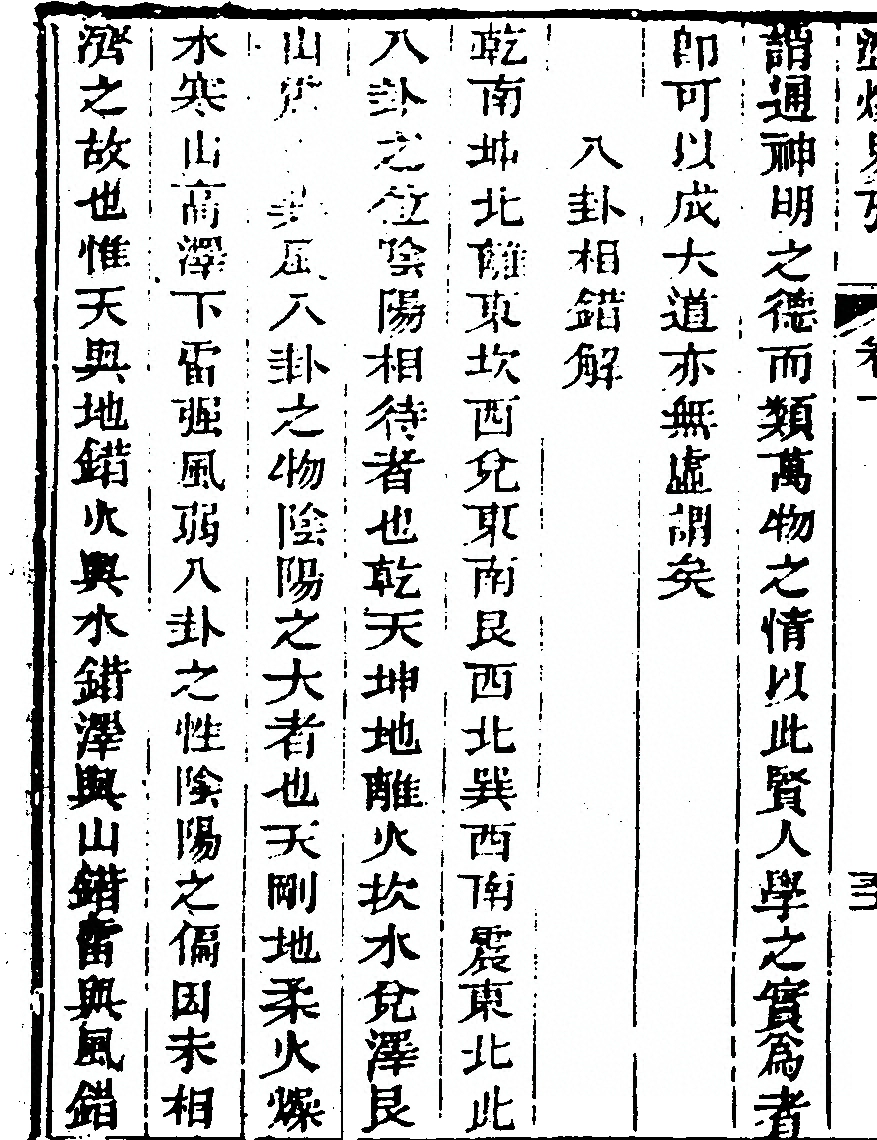 卷一
謂通神明之德而類萬物之情以此賢人學之實爲者
即可以成大道亦無虛謂矣
八卦相錯解
乾南坤北離東坎西兌東南艮西北巽西南震東北此
八卦之位陰陽相待者也乾天坤地離火坎水兌澤艮
山震巽風八卦之物陰陽之大者也天剛地柔火燥
水寒山高澤下雷强風弱八卦之性陰陽之偏因未相
濟之故也惟天與地錯火與水錯澤與山錯雷與風錯